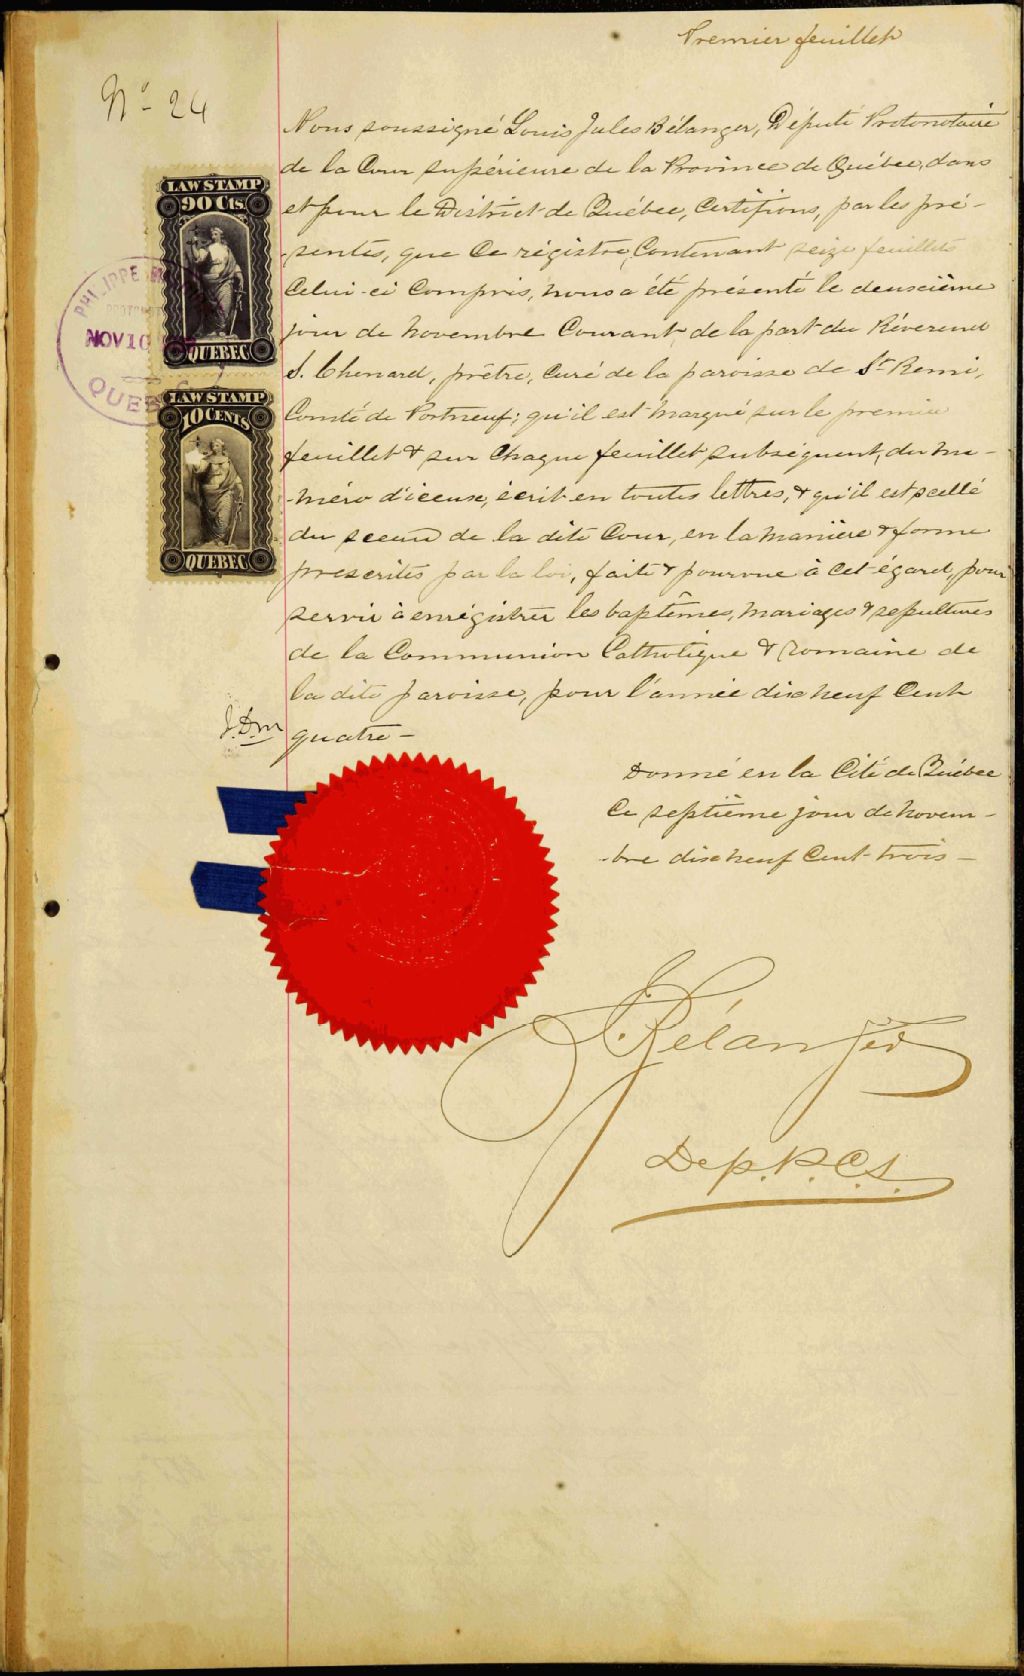 Premier feuillet
No - 24
Nous soussigné Louis Jules Bélanger, Député Protonotaire
de la Cour supérieure de la Province de Québec, dans
et pour le District de Québec, Certifions, par les pré-
-sentes, que Ce régistre, Contenant seize feuillets
Celui-ci Compris, nous a été présenté le deuxième
jour de novembre Courant, de la part du Révérend
S. Chenard, prêtre, Curé de la paroisse de St Remi,
Comté de Portneuf; qu'il est marqué sur le premier
feuillet & sur Chaque feuillet subséquent, du nu-
-méro d'iceux, écrit en toutes lettres, & qu'il est scellé
du sceau de la dite Cour, en la manière & forme
prescrites par la loi, faite & pourvue à Cet égard, pour
servir à enrégistrer les baptêmes, mariages & sépultures
de la Communion Catholique & Romaine de
la dite paroisse, pour l'année dix neuf Cent
quatre-
J.D.M
LAW STAMP
90 Cts.
QUEBEC
LAW STAMP
10 CENTS
QUEBEC
PHILIPPE
NOV 10
QUEBEC
Donné en la Cité de Québec
Ce septième jour de novem-
-bre dix neuf Cent trois-
J. Bélanger
Dep. P.C.S.